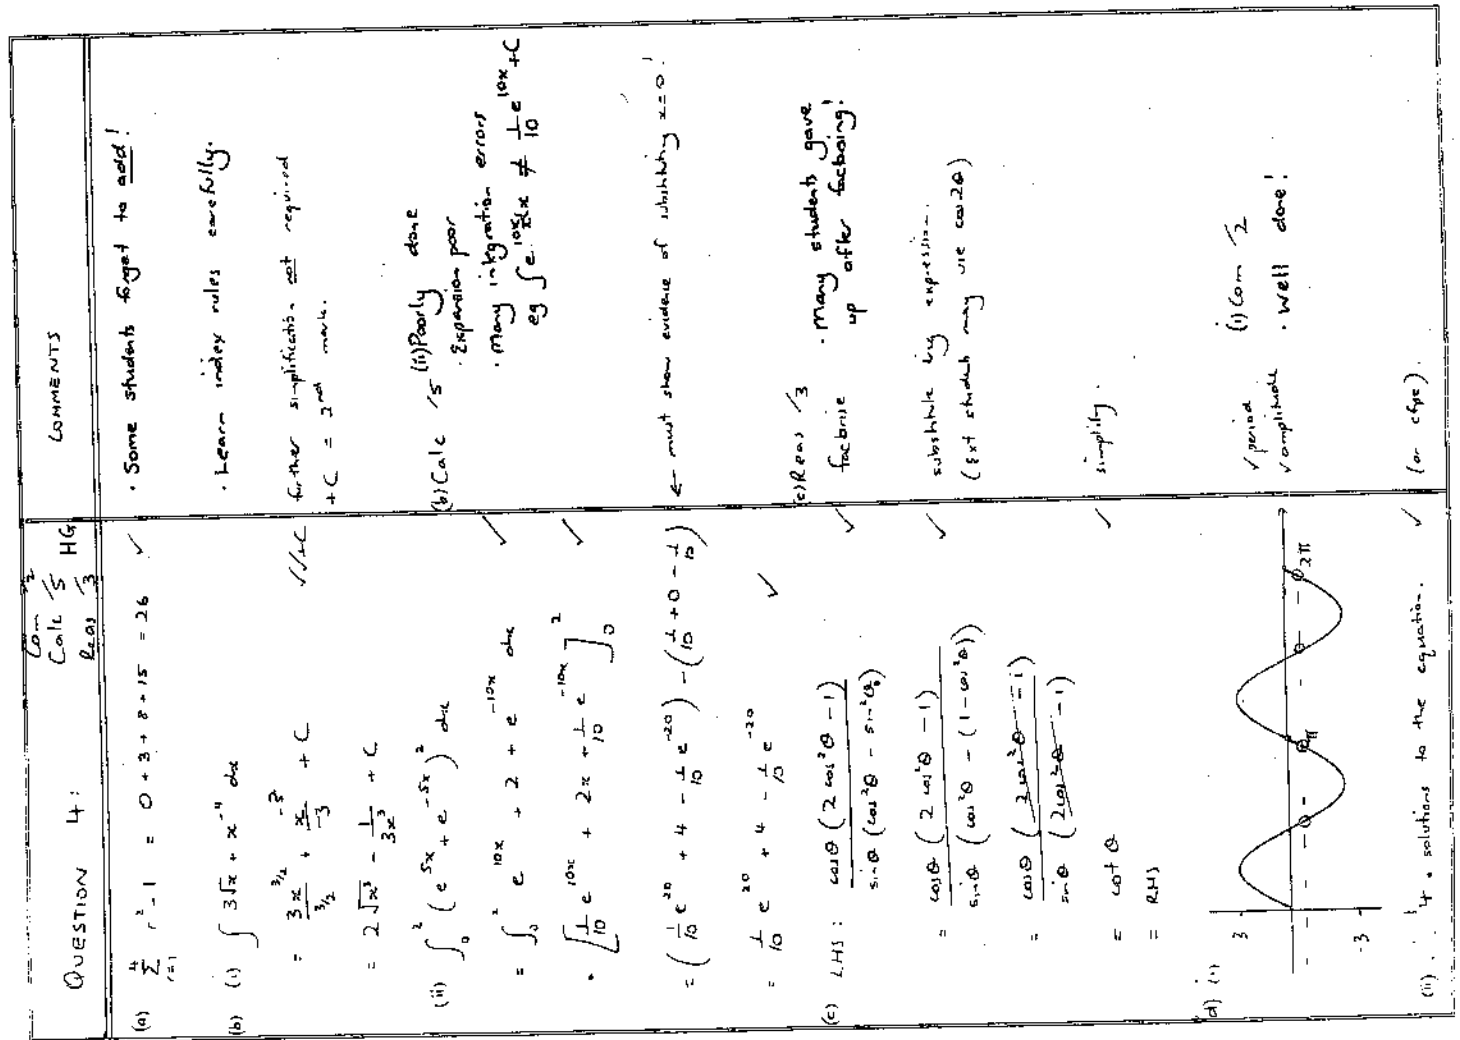 QUESTION 4:
Com /2
Calc /5
Reas /3
HG
COMMENTS
(a) \sum_{r=1}^{4} r² - 1 = 0 + 3 + 8 + 15 = 26 ✓
· Some students forget to add!
(b) (i) ∫ 3√x + x⁻⁴ dx
· Learn index rules carefully.
= 3x^{3/2} / (3/2) + x⁻³ / -3 + C ✓✓+C
further simplification not required
+C = 2nd mark.
= 2√x³ - 1/(3x³) + C
(ii) ∫₀² (e^{5x} + e^{-5x})² dx
(b) Calc /5 (ii) Poorly done
· Expansion poor
= ∫₀² e^{10x} + 2 + e^{-10x} dx ✓
· Many integration errors
eg ∫ e^{10x} dx ≠ 1/10 e^{10x} + C
· [1/10 e^{10x} + 2x + 1/10 e^{-10x}]₀² ✓
= (1/10 e^{20} + 4 - 1/10 e^{-20}) - (1/10 + 0 - 1/10)
← must show evidence of substituting x=0!
= 1/10 e^{20} + 4 - 1/10 e^{-20} ✓
(c) LHS: cosθ (2cos²θ - 1) / sinθ (cos²θ - sin²θ) ✓
(c) Reas /3 · Many students gave
factorise up after factorising!
= cosθ (2cos²θ - 1) / sinθ (cos²θ - (1 - cos²θ)) ✓
substitute trig expression.
(Ext students may use cos2θ)
= cosθ (2cos²θ - 1) / sinθ (2cos²θ - 1)
= cotθ ✓
simplify.
= RHS
d) (i)
3
-3
π
2π
✓ period (i) Com /2
✓ amplitude · Well done!
(ii) ∴ 4 solutions to the equation. ✓